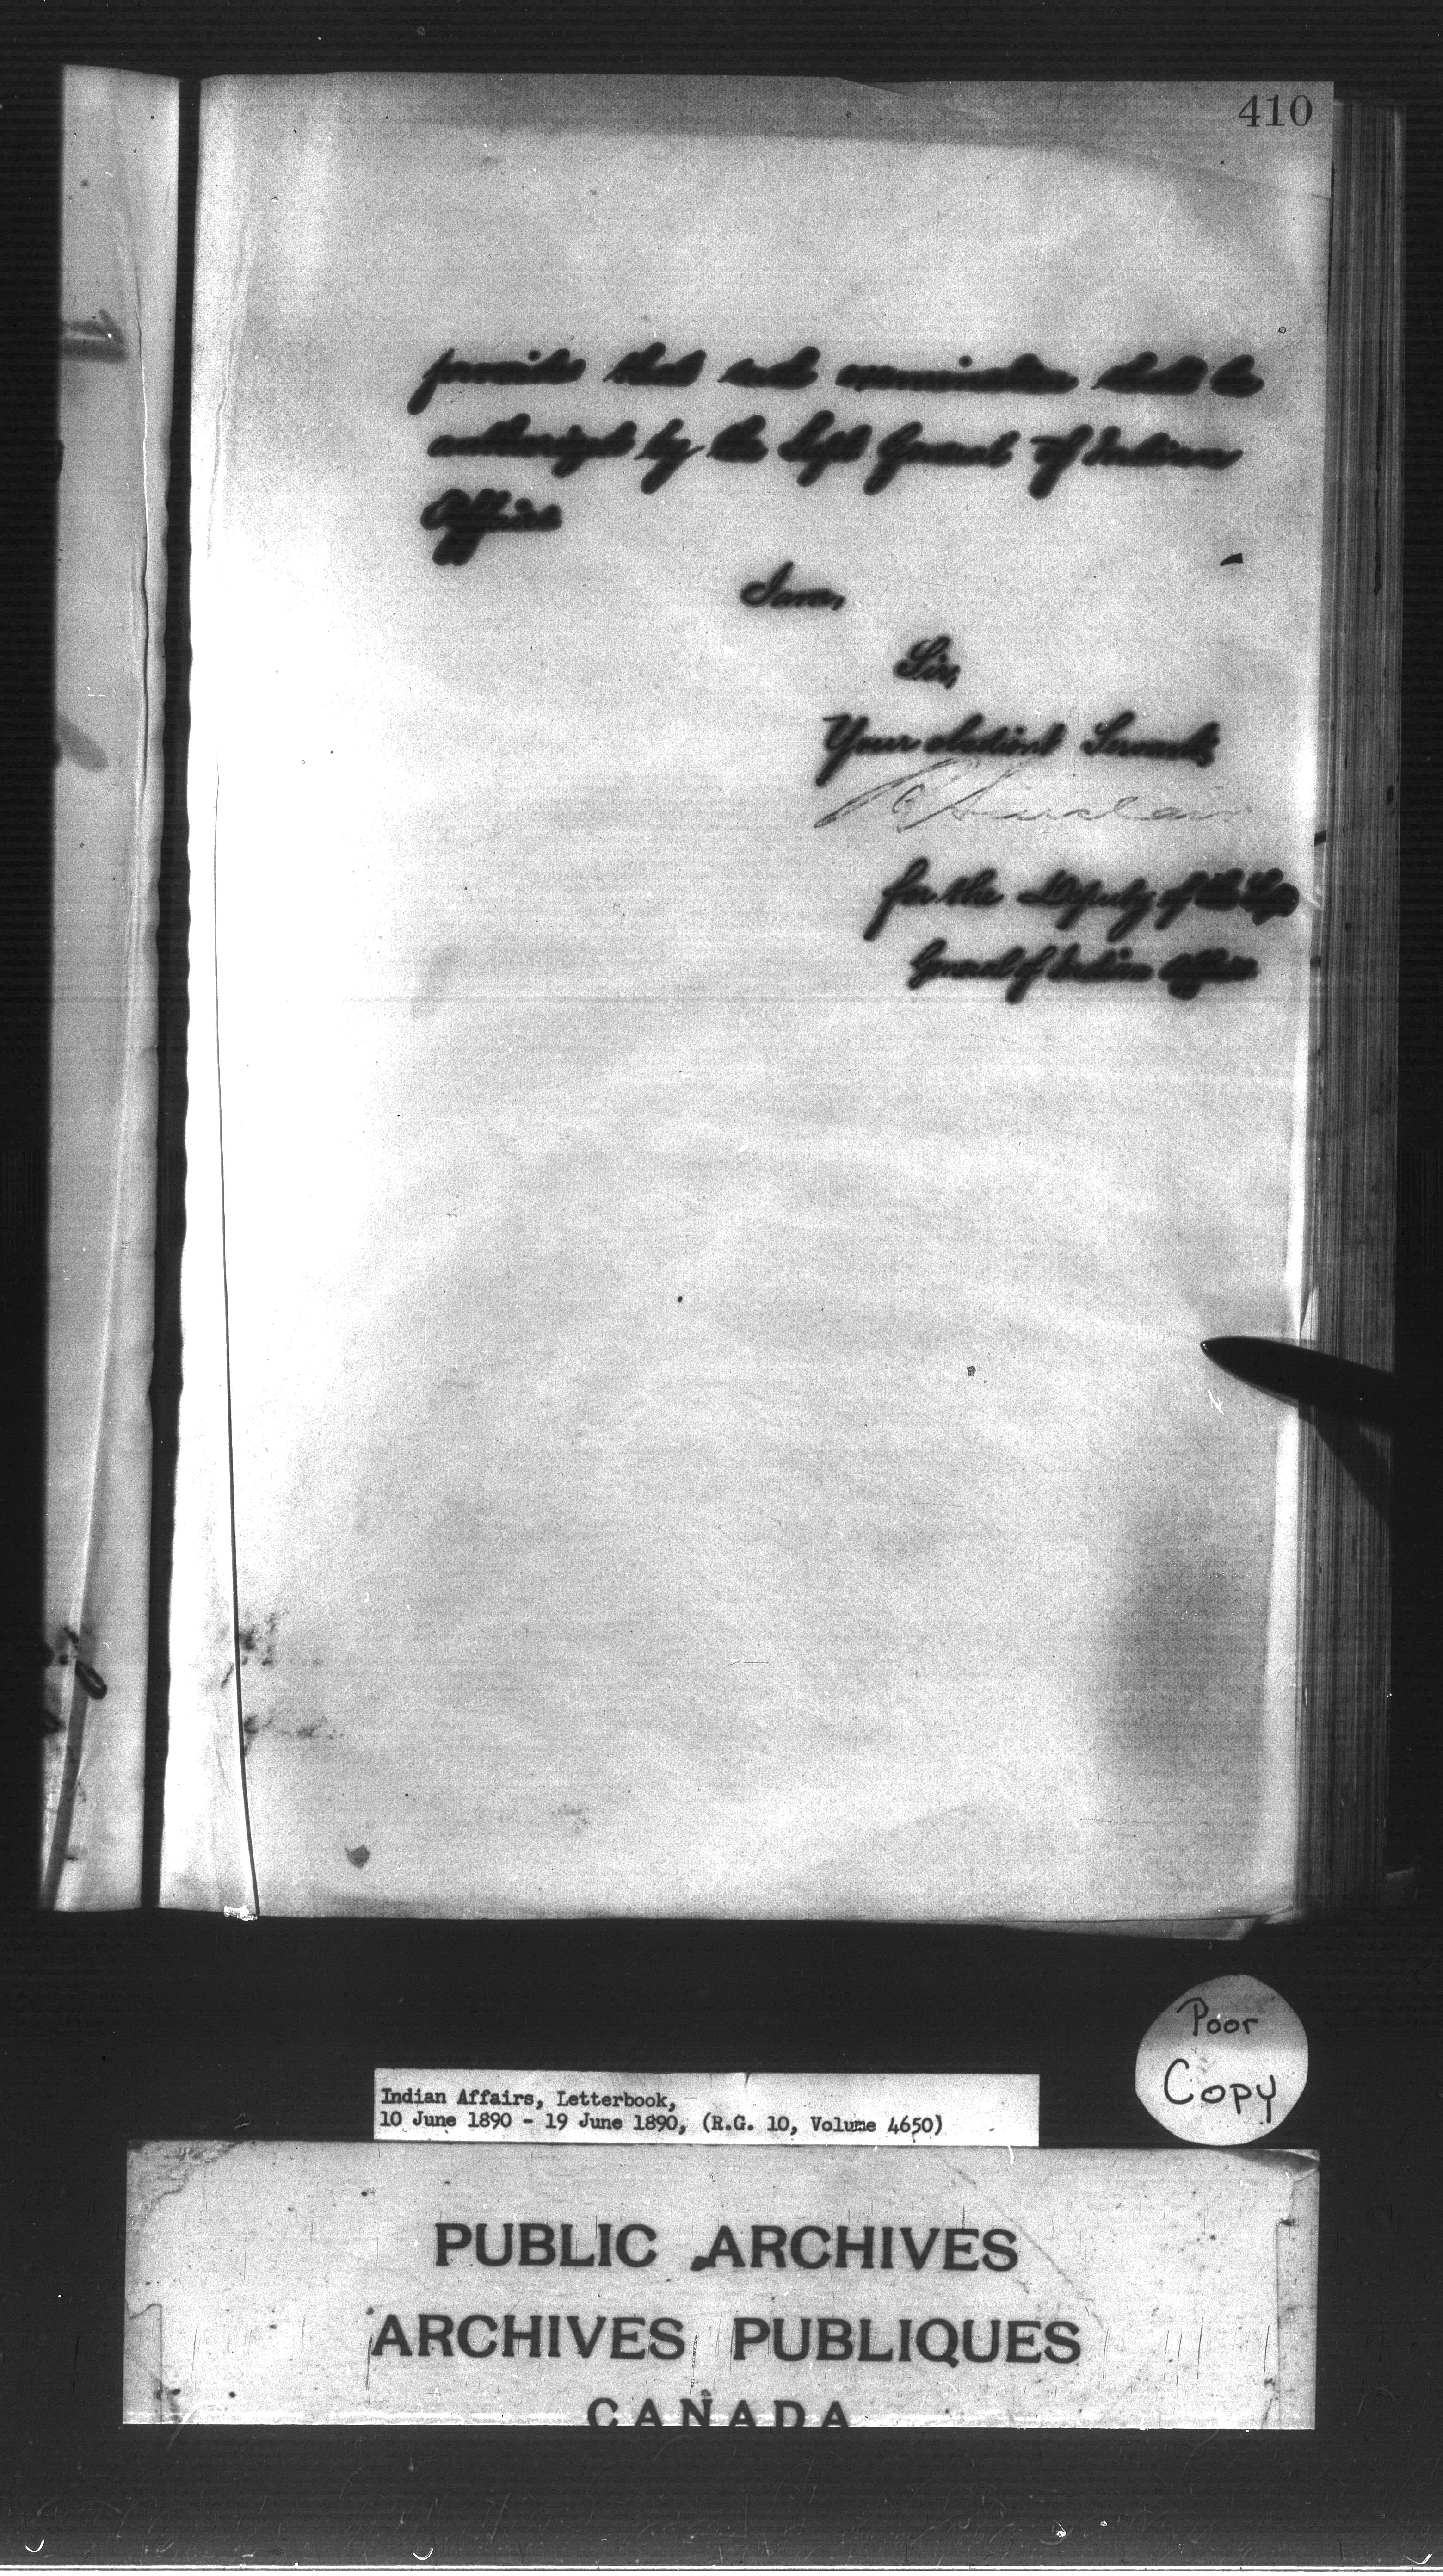 410
provides that such examination shall be
authorized by the Supt General of Indian
Affairs
I am,
Sir,
Your obedient Servant,
Sinclair
for the Deputy of the Supt
General of Indian Affairs
Poor
Copy
Indian Affairs, Letterbook,
10 June 1890 - 19 June 1890, (R.G. 10, Volume 4650)
PUBLIC ARCHIVES
ARCHIVES PUBLIQUES
CANADA